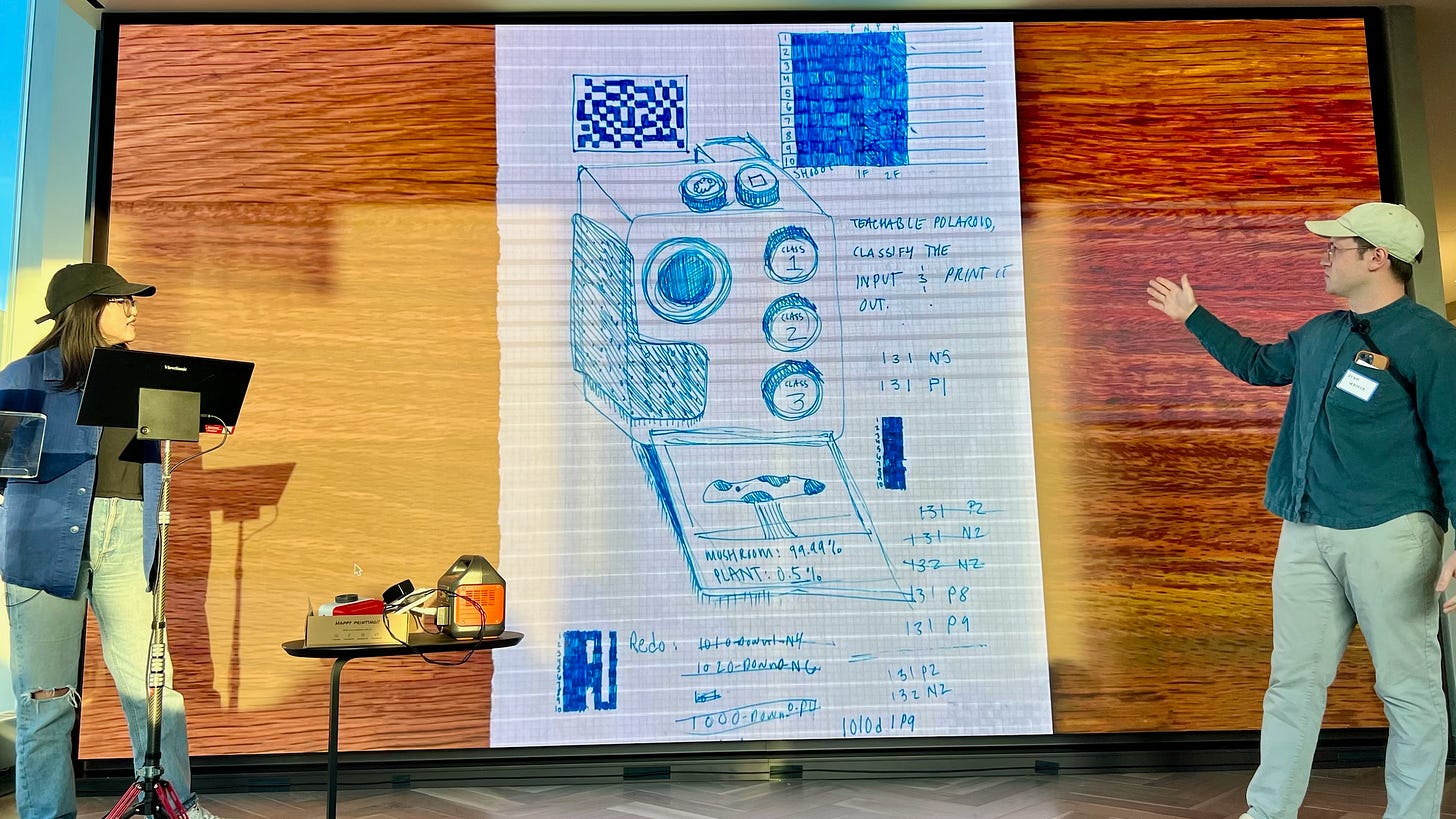 P N P N
1
2
3
4
5
6
7
8
9
10
SHOOT 1F 2F
TEACHABLE POLAROID,
CLASSIFY THE
INPUT & PRINT IT
OUT.
CLASS
1
CLASS
2
CLASS
3
131 N5
131 P1
131 P2
131 N2
132 N2
131 P8
131 P9
131 P2
132 N2
1010d 1P9
MUSHROOM: 99.49%
PLANT: 0.5%
Redo: 1010-Down1-N4
1020-Down0-N6
1000-Down0-P11
ViewSonic
HAPPY PRINTING!!
RYAN